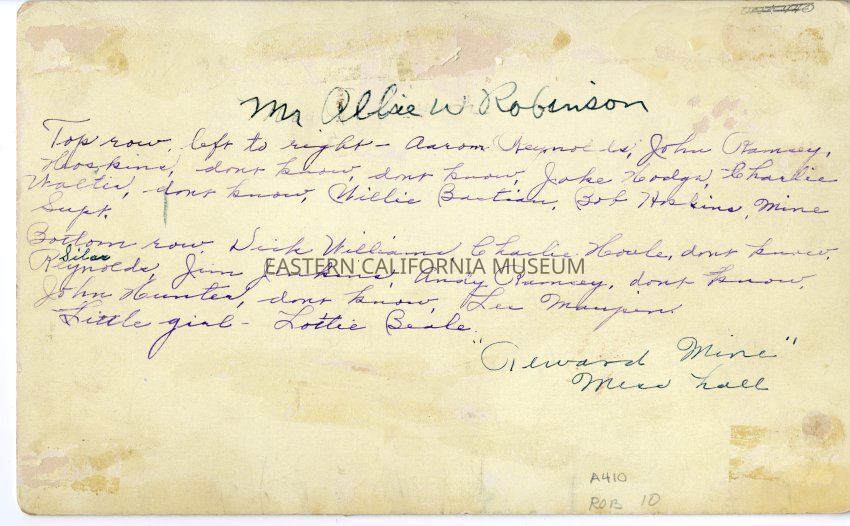 Mr Albie W Robinson
Top row, left to right - Aarom Reynolds, John Ramsey,
Hoskins, - dont know, dont know, Jake Hodgs, Charlie
Walter, - dont know, Willie Bastian, Bob Hoskins, Mine
Supt.
Bottom row, Dick Williams, Charlie Hoole, dont know,
Silas
Reynolds, Jim Jenkins, Andy Ramsey, dont know,
EASTERN CALIFORNIA MUSEUM
John Hunter, dont know, Lee Maupin.
Little girl - Lottie Beale.
"Reward Mine"
Mess hall
A410
ROB 10